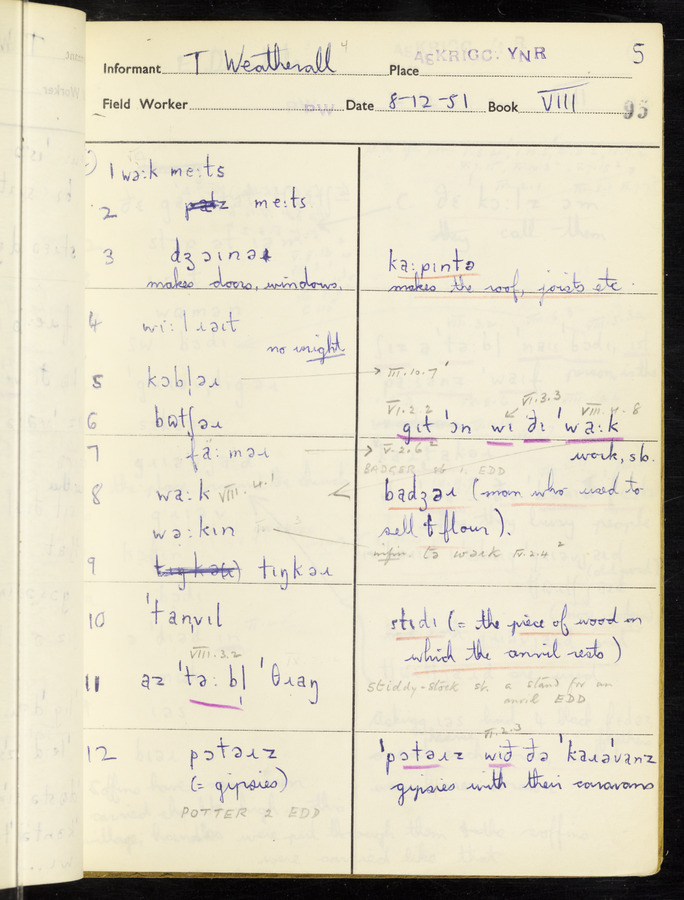 Informant T Weatherall 4 Place ASKRIGG. YNR 5
Field Worker PW Date 8-12-51 Book VIII 93
1 wəːk meːts
2 meːts
3 dʒɔɪnəɹ
makes doors, windows.
kaːpɪntə
makes the roof, joists etc.
4 wiːlɹaɪt
no wright
5 kɔbləɹ
→ III.10.7
6 bʊtʃəɹ
VI.2.2 VI.3.3 VIII.4.8
gɪt 'ɔn wɪ ðɪ 'waːk
7 faːməɹ
→ V.2.6
work, sb.
BADGER sb 1. EDD
8 waːk VIII.4.1
badʒəɹ (man who used to
sell flour).
wəːkɪn
infin. tə waːk IV.2.4
9 tɪŋkəɹ
10 'tanvɪl
stɪdɪ (= the piece of wood on
which the anvil rests)
stiddy-stock sb. a stand for an
anvil EDD
VIII.3.2
11 az 'təːbl 'θɹaŋ
12 pɔtəɹz
(= gipsies)
POTTER 2 EDD
VI.2.3
'pɔtəɹz wɪð ðə 'kaɹə'vanz
gypsies with their caravans